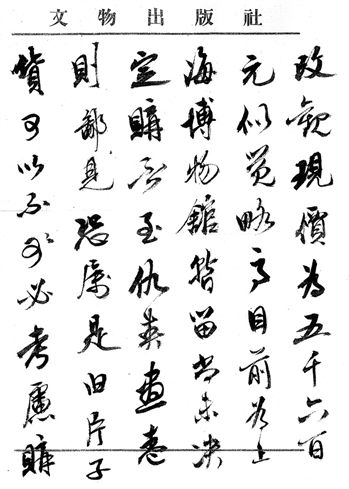 文物出版社
改觀現價為五千六百
元似覺略高目前為上
海博物館暫留尚未決
定購否至仇英畫卷
則鄙見恐屬是旧片子
貨可以不必考慮購